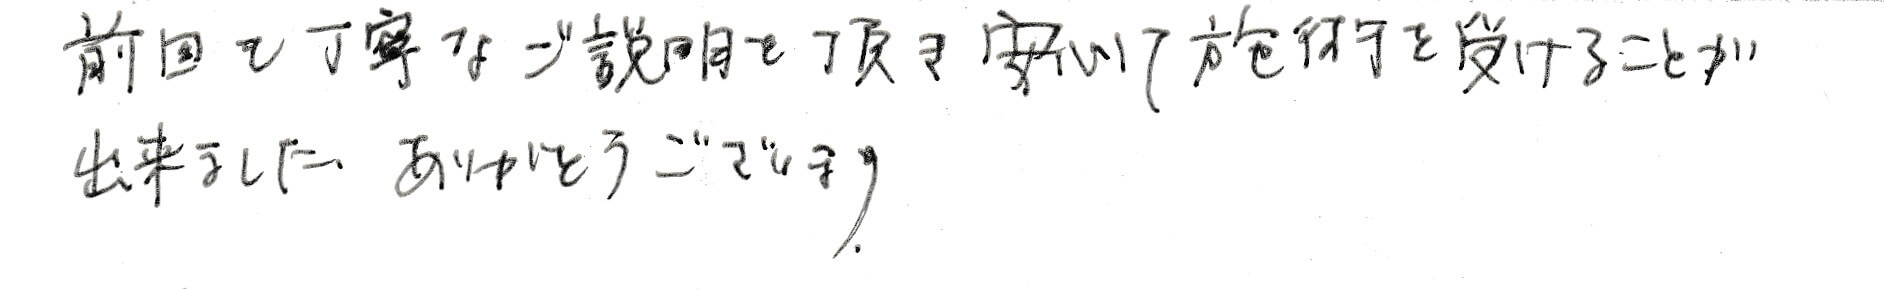 前回も丁寧なご説明を頂き安心して施術を受けることが
出来ました。ありがとうございます。